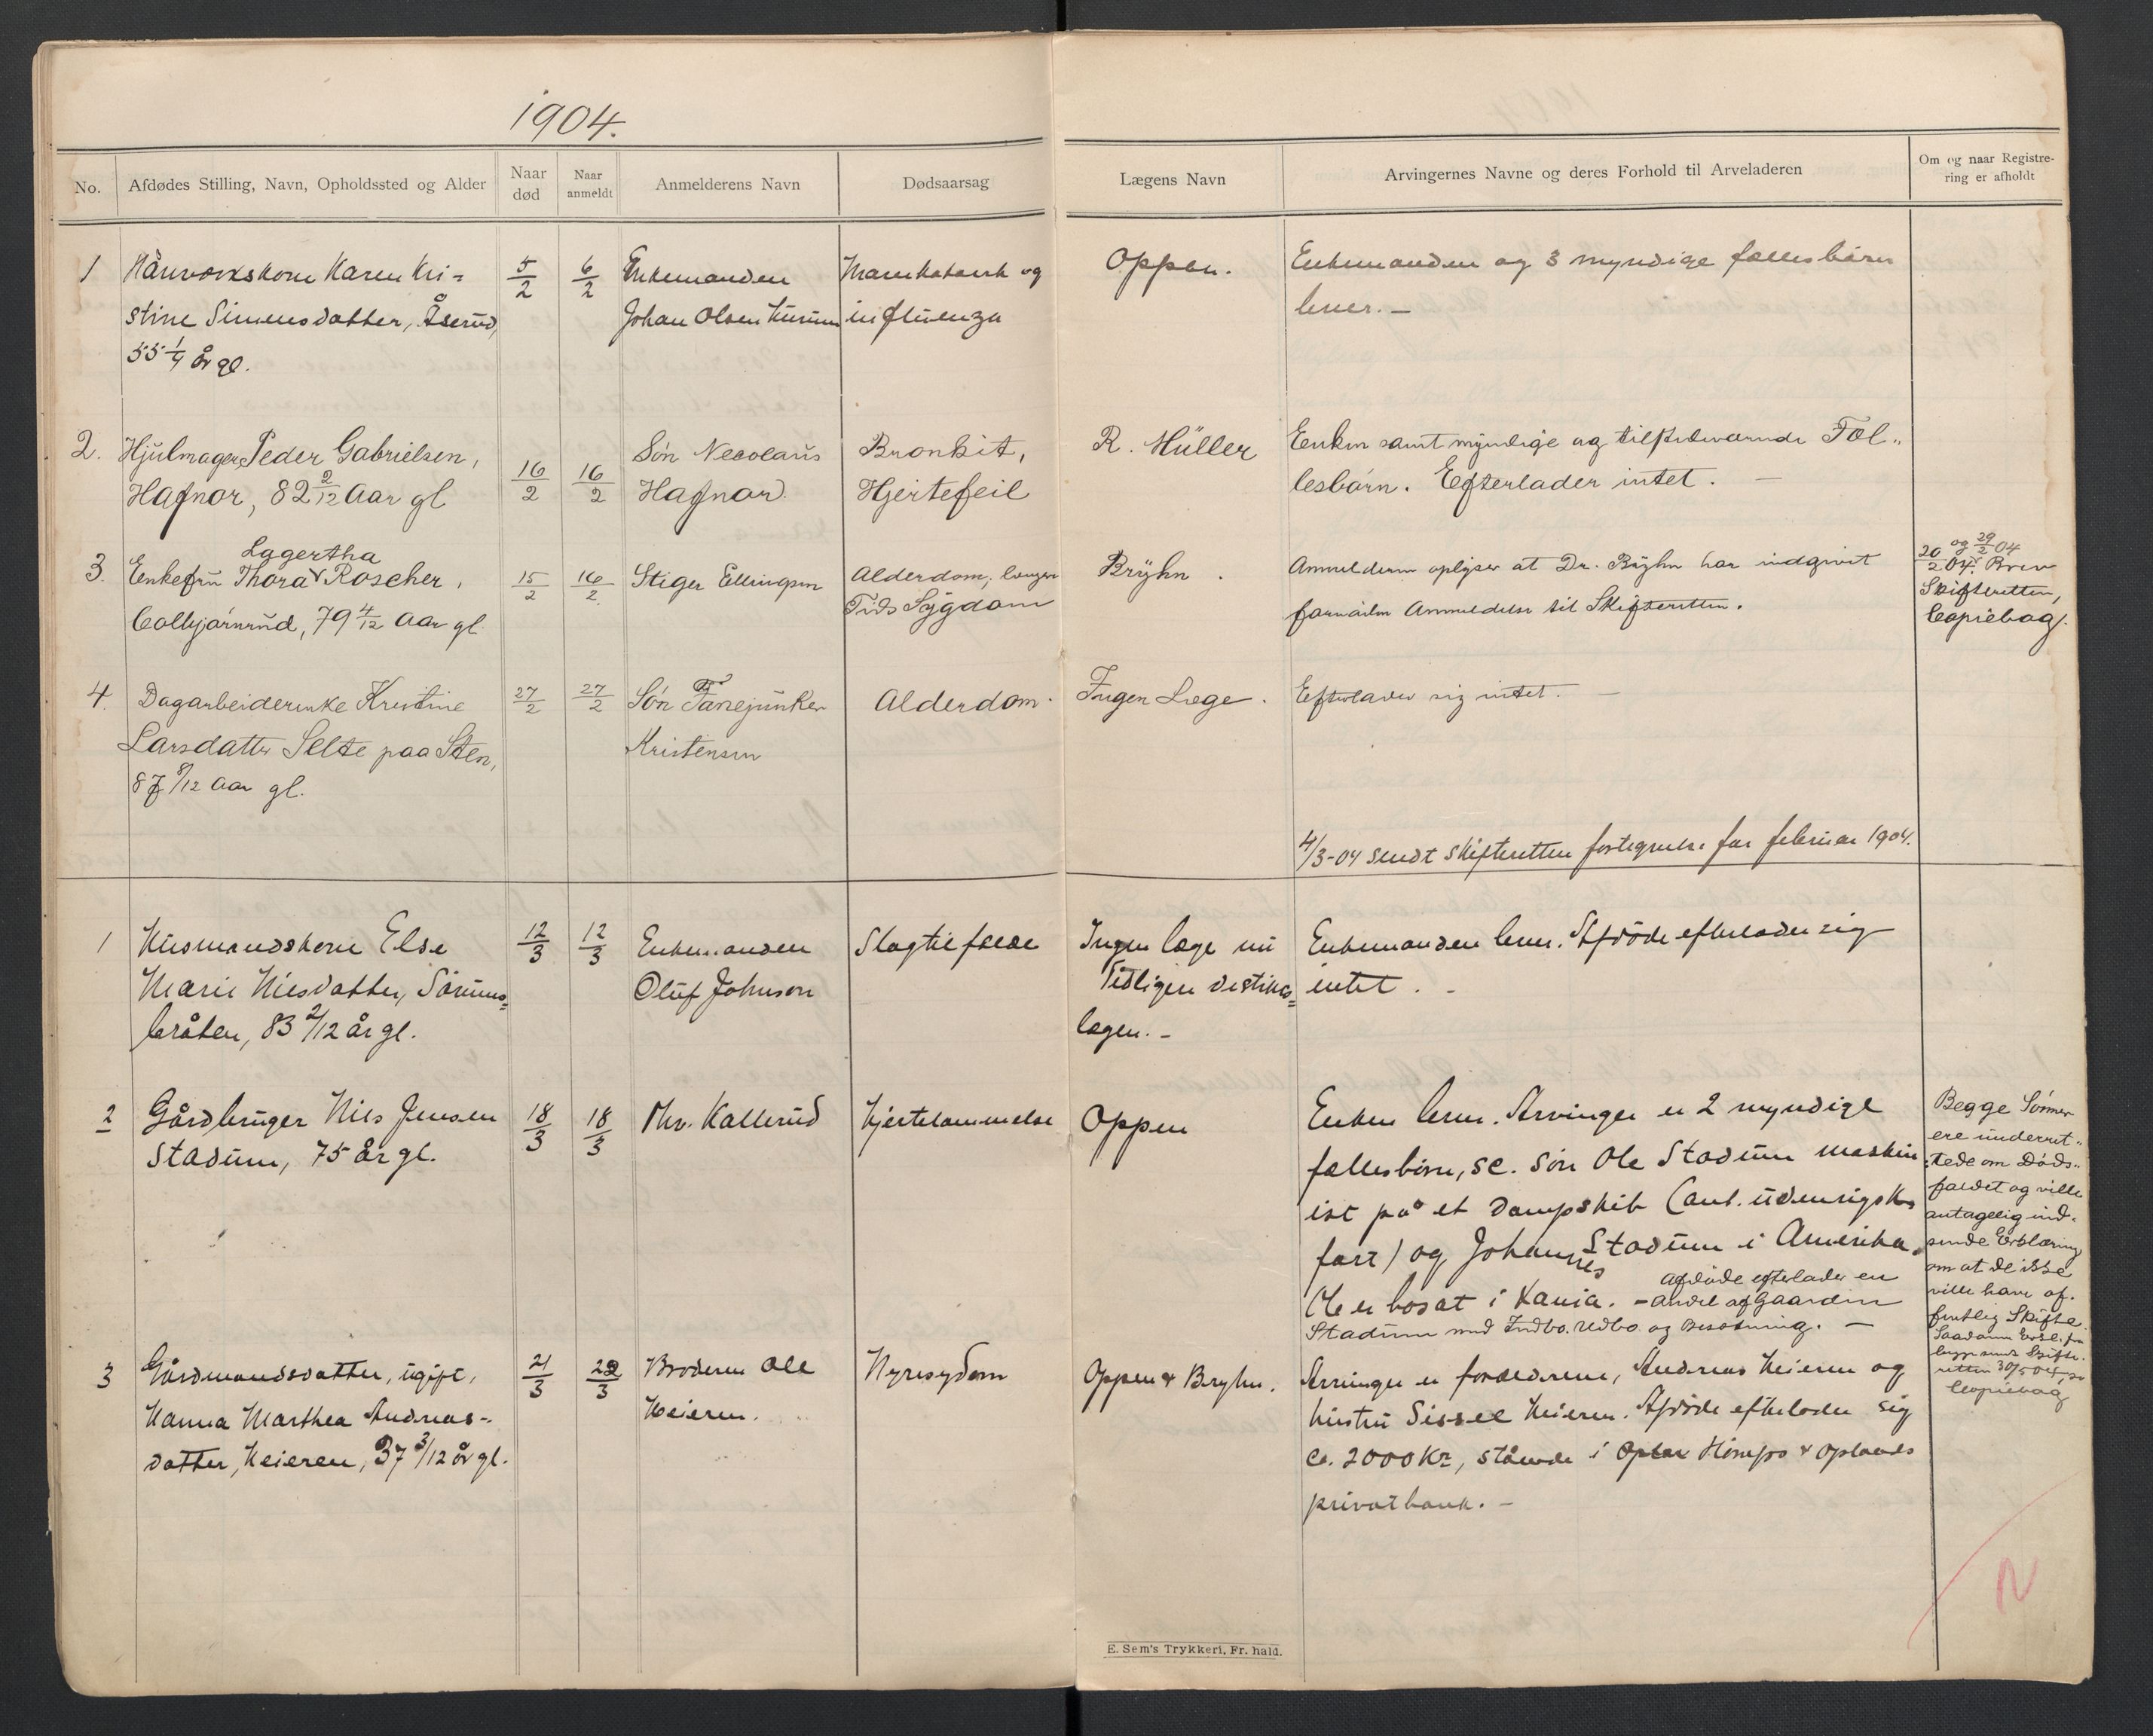 1904.
No.
Afdødes Stilling, Navn, Opholdssted og Alder
Naar død
Naar anmeldt
Anmelderens Navn
Dødsaarsag
Lægens Navn
Arvingernes Navne og deres Forhold til Arveladeren
Om og naar Registre-
ring er afholdt
1
Karen Kri-
stine Simensdatter, Åserud,
55 1/4 år gl.
5/2
6/2
Enkemanden
Johan Olsen
og
influenza
Oppen.
Enkemanden og 3 myndige fællesbörn
lever. -
2.
Hjulmager Peder Gabrielsen,
Hafnor, 82 2/12 Aar gl
16/2
16/2
Søn Necolaus
Hafnor.
Bronkit,
Hjertefeil
R. Müller
Enken samt myndige og tilstedeværende Fæl„
lesbørn. Efterlader intet. -
3.
Lagertha
Enkefru Thora v Roscher,
Colbjørnrud, 79 4/12 Aar gl.
15/2
16/2.
Stiger Ellingsen
Alderdom, længere
Tids Sygdom
Bryhn.
Anmelderen oplyser at Dr. Bryhn har indgivet
fornøden Anmeldelse til Skifteretten.
og 29/2 04
20/2 04. Brev
Skifteretten,
Copiebog.
4.
Dagarbeiderenke Kristine
Larsdatter Selte paa Sten,
87 8/12 Aar gl.
27/2
27/2
Søn Fanejunker
Kristensen
Alderdom.
Ingen Læge.
Efterlader sig intet. -
4/3-04 sendt skifteretten fortegnelse for februar 1904.
1
Husmandskone Else
Marie Nilsdatter, Sörums=
bråten, 83 2/12 år gl.
12/3
12/3
Enkemanden
Oluf Johnson
Slagtilfælde
Ingen læge nu
Tidligere distrikts=
lægen. -
Enkemanden lever. Afdöde efterlader sig
intet. -
2
Gårdbruger Nils Jensen
Stadum, 75 år gl.
18/3
18/3
Thv. Kallerud
Hjertelammelse
Oppen
Enken lever. Arvinger er 2 myndige
fællesbörn, sc. sön Ole Stadum maskin
ist på et dampskib (ant. udenrigsk
fart) og Johannes Stadum i Amerika.
Ole er bosat i Kania. - Afdøde efterlader en
Andel af Gaarden
Stadum med Indbo. Udbo og Besætning. -
Begge Sønner
ere underret„
tede om Døds„
faldet og ville
antagelig ind-
sende Erklæring
om at de ikke
ville have of-
fentlig Skifte.
Saadann Erkl. fra
begge sendt Skifte-
retten 30/5 04, se
Copiebog
3
Gårdmandsdatter, ugift,
Hanna Marthea Andreas-
datter, Heieren, 37 3/12 år gl.
21/3
22/3
Broderen Ole
Heieren.
Nyresygdom
Oppen & Bryhn.
Arvinger er forældrene, Andreas Heieren og
hustru Sissel Heieren. Afdöde efterlader sig
ca. 2000 Kr, stående i Oplan Hönefos & Oplands
privatbank. -
E. Sem's Trykkeri, Fr. hald.